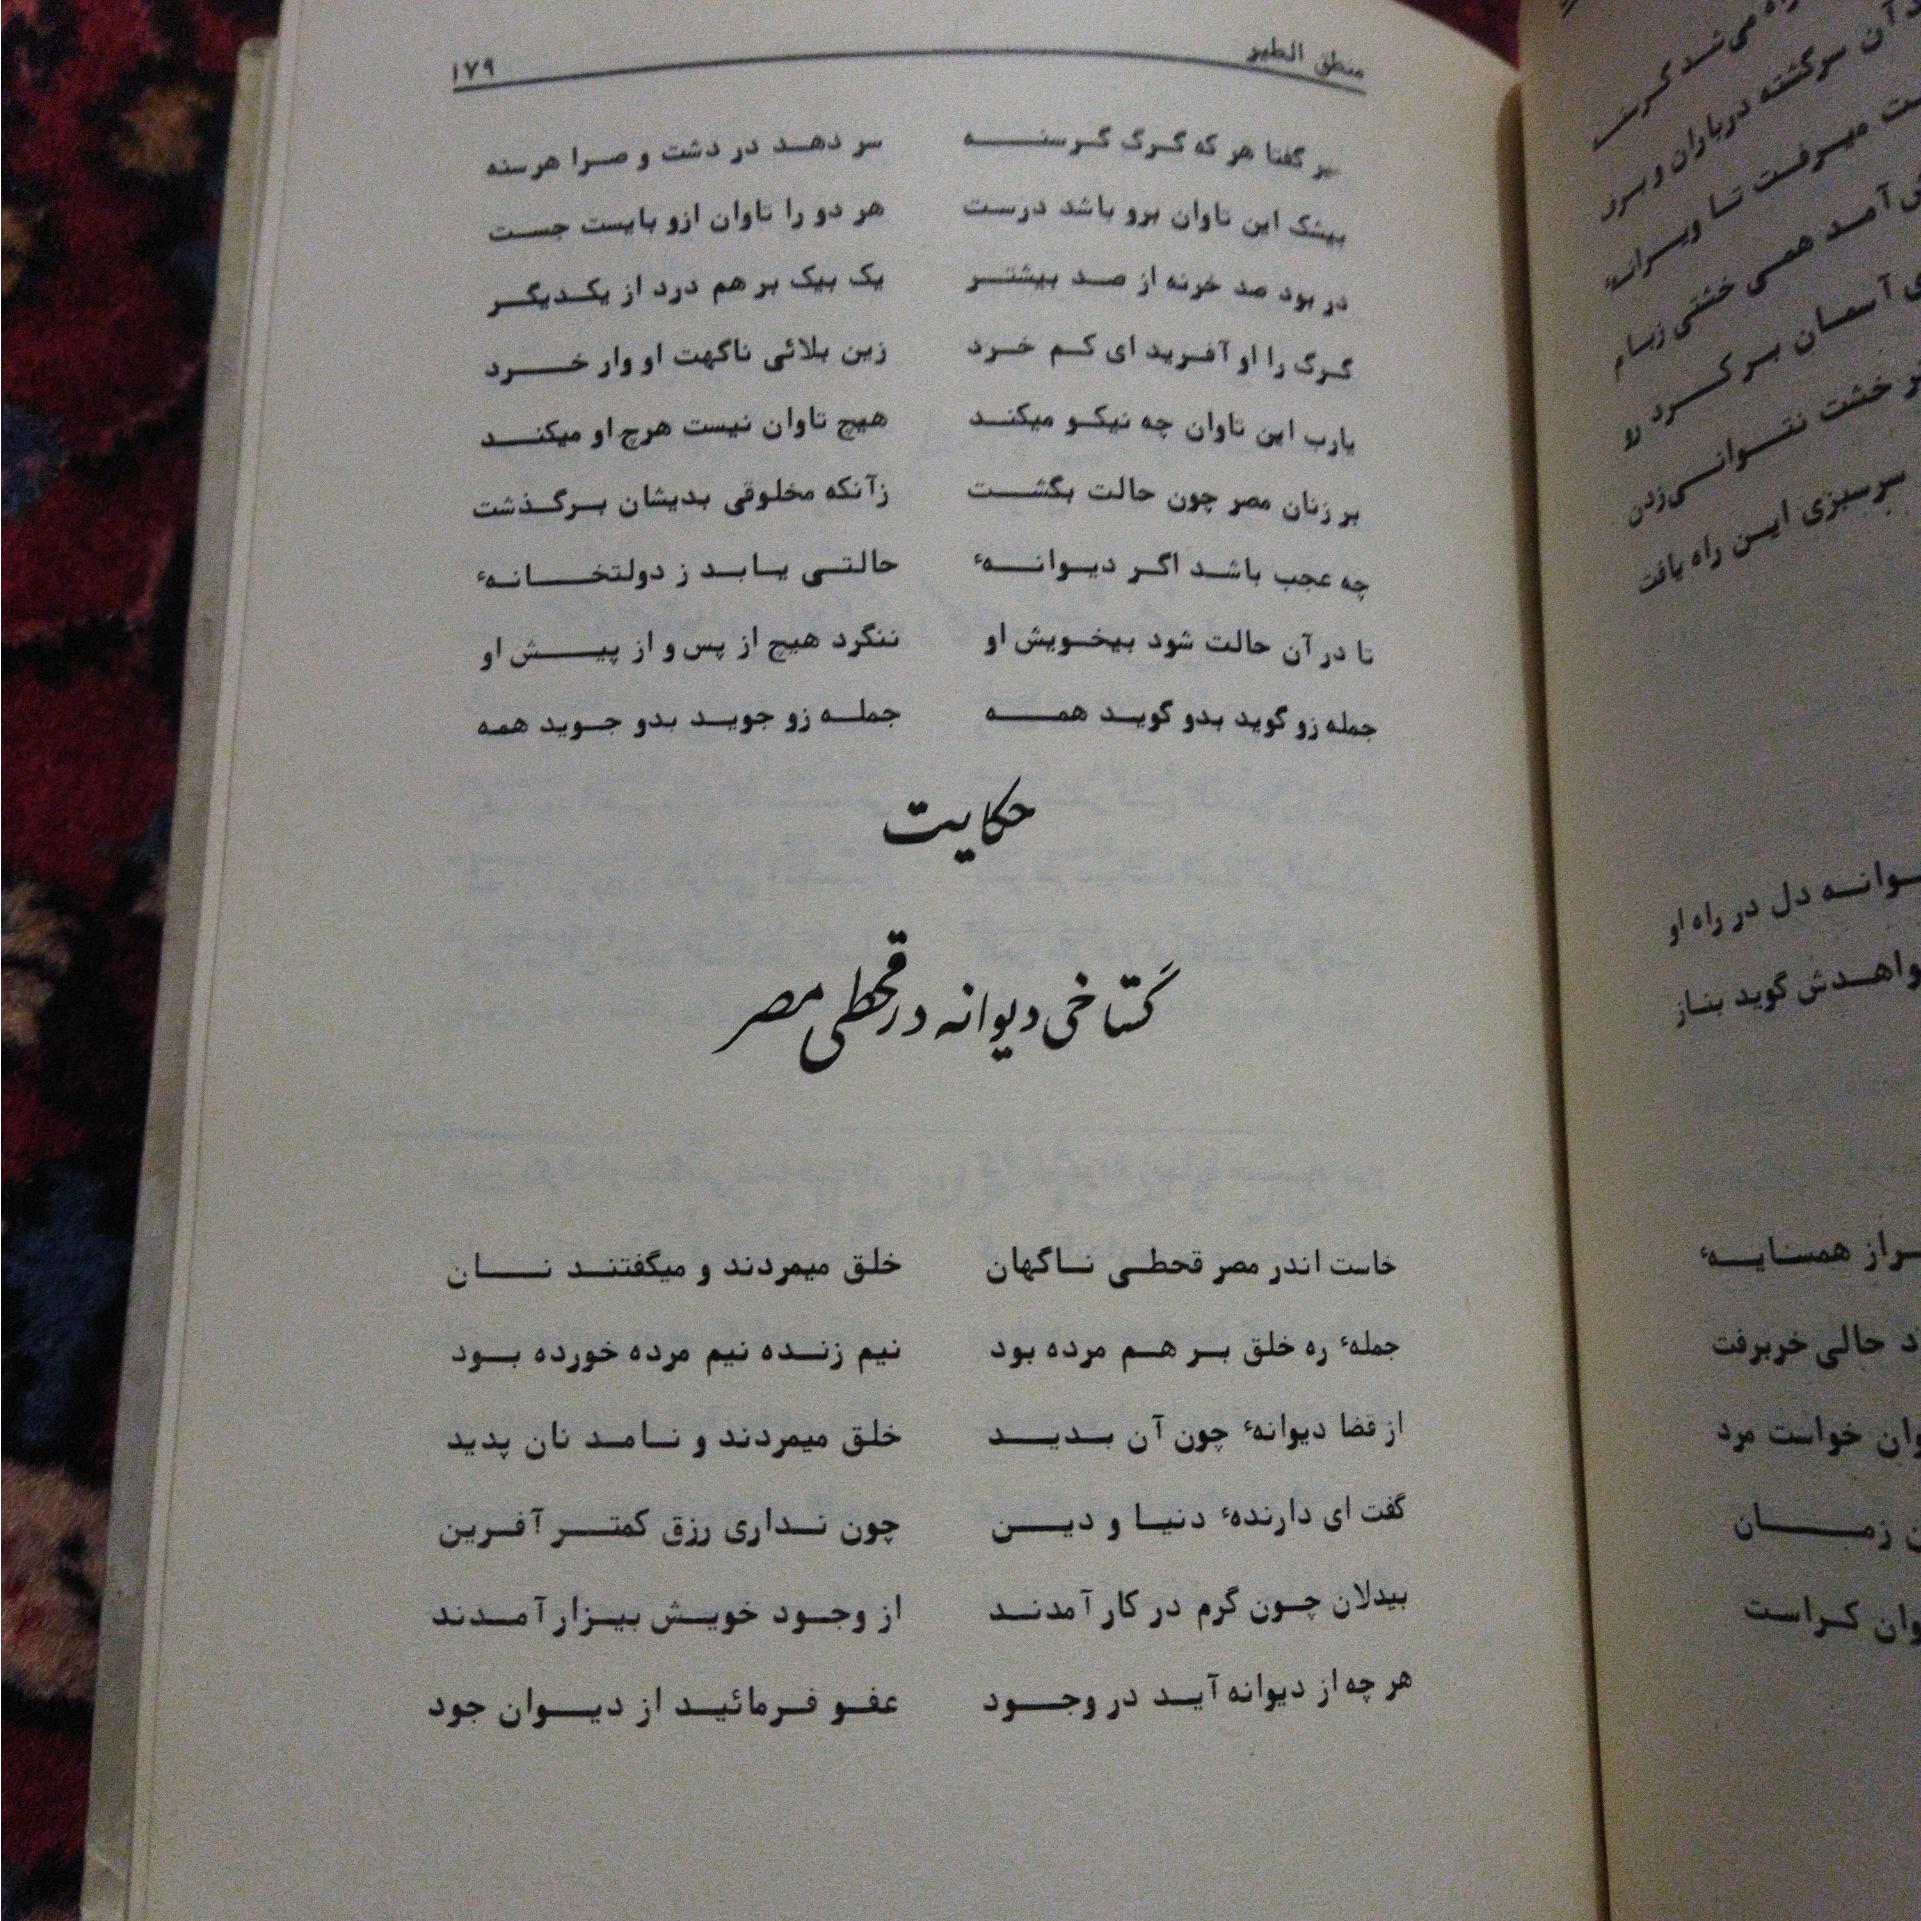 منطق الطیر ۱۷۹
میر گفتا هر که گرگ گرسنه سر دهد در دشت و صرا هرسنه
بیشک این تاوان برو باشد درست هر دو را تاوان ازو بایست جست
در بود صد خرنه از صد بیشتر یک بیک بر هم درد از یکدیگر
گرگ را او آفرید ای کم خرد زین بلائی ناگهت او وار خرد
یارب این تاوان چه نیکو میکند هیچ تاوان نیست هرچ او میکند
بر زنان مصر چون حالت بگشت زآنکه مخلوقی بدیشان برگذشت
چه عجب باشد اگر دیوانهٔ حالتی یابد ز دولتخانهٔ
تا در آن حالت شود بیخویش او ننگرد هیچ از پس و از پیش او
جمله زو گوید بدو گوید همه جمله زو جوید بدو جوید همه
حکایت
گستاخی دیوانه در قحطی مصر
خاست اندر مصر قحطی ناگهان خلق میمردند و میگفتند نان
جملهٔ ره خلق بر هم مرده بود نیم زنده نیم مرده خورده بود
از قضا دیوانهٔ چون آن بدید خلق میمردند و نامد نان پدید
گفت ای دارندهٔ دنیا و دین چون نداری رزق کمتر آفرین
بیدلان چون گرم در کار آمدند از وجود خویش بیزار آمدند
هر چه از دیوانه آید در وجود عفو فرمائید از دیوان جود
می‌شد
آن سرگشته در باران و برف
میرفت تا ویرانهٔ
آمد همی خشتی زبام
آسمان برکرد رو
خشت نتوانی زدن
سرسبزی این راه یافت
دل در راه او
گوید بناز
همسایهٔ
حالی خربرفت
خواست مرد
زمان
کراست